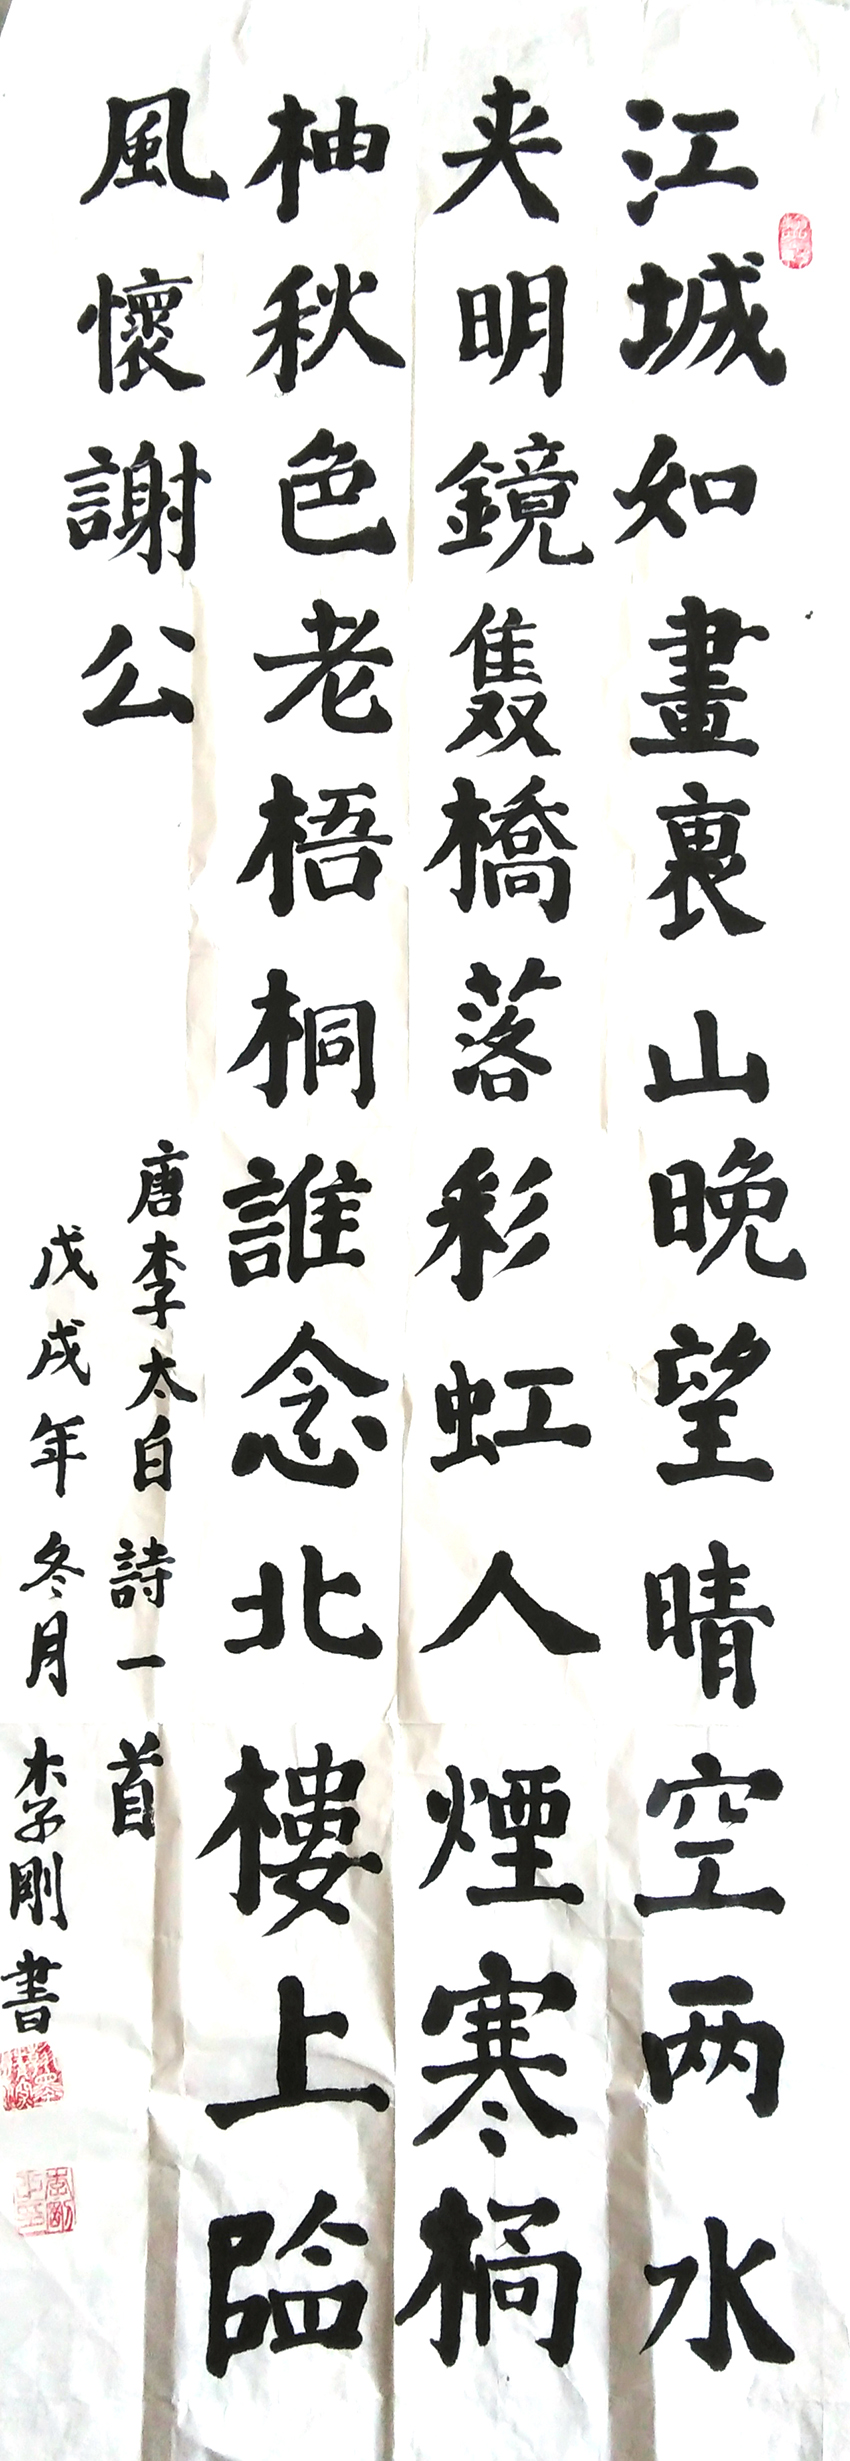 江城如畫裏山晚望晴空两水
夹明鏡雙橋落彩虹人煙寒橘
柚秋色老梧桐誰念北樓上臨
風懷謝公
唐李太白詩一首
戊戌年冬月李剛書